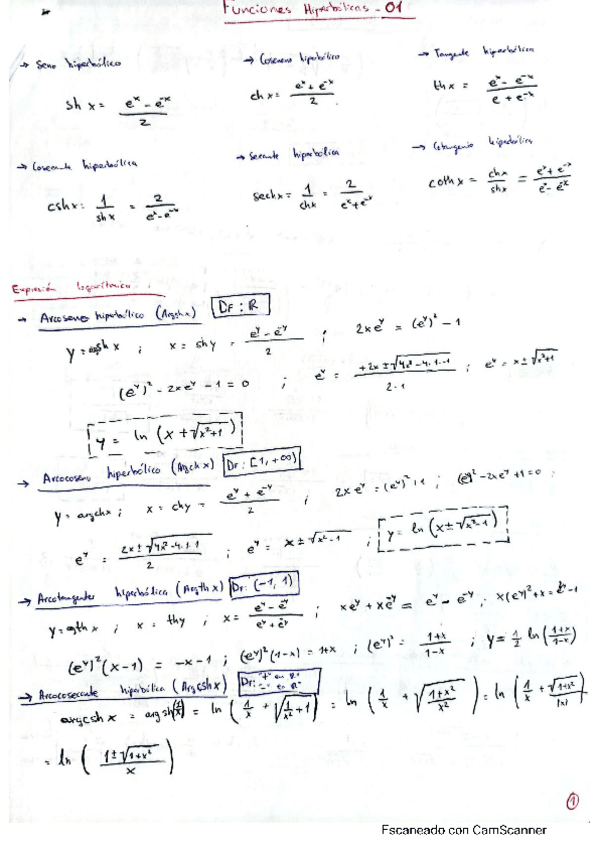 Funciones Hiperbólicas - 01
→ Seno hiperbólico → Coseno hiperbólico → Tangente hiperbólica
sh x = (eˣ - e⁻ˣ)/2 ch x = (eˣ + e⁻ˣ)/2 th x = (eˣ - e⁻ˣ)/(e + e⁻ˣ)
→ Cosecante hiperbólica → Secante hiperbólica → Cotangente hiperbólica
cshx = 1/shx = 2/(eˣ - e⁻ˣ) sechx = 1/chx = 2/(eˣ + e⁻ˣ) coth x = chx/shx = (eˣ + e⁻ˣ)/(eˣ - e⁻ˣ)
Expresión logarítmica
→ Arcoseno hiperbólico (Argshx) DF: R
x = shy = (eʸ - e⁻ʸ)/2 ; 2xeʸ = (eʸ)² - 1
(eʸ)² - 2xeʸ - 1 = 0 ; eʸ = (+2x ± √(4x² - 4·1·-1))/(2·1) ; eʸ = x ± √(x²+1)
y = ln (x + √(x²+1))
→ Arcocoseno hiperbólico (Argchx) DF: [1, +∞)
y = argchx ; x = chy = (eʸ + e⁻ʸ)/2 ; 2xeʸ = (eʸ)² + 1 ; (eʸ)² - 2xeʸ + 1 = 0 ;
eʸ = (2x ± √(4x² - 4·1·1))/2 ; eʸ = x ± √(x²-1) ; y = ln (x ± √(x²-1))
→ Arcotangente hiperbólica (Argthx) DF: (-1, 1)
x = thy ; x = (eʸ - e⁻ʸ)/(eʸ + e⁻ʸ) ; xeʸ + xe⁻ʸ = eʸ - e⁻ʸ ;
(eʸ)²(x-1) = -x-1 ; (eʸ)²(1-x) = 1+x ; (eʸ)² = (1+x)/(1-x) ; y = 1/2 ln((1+x)/(1-x))
→ Arcocosecante hiperbólica (Argcshx) DF: "+" en R⁺ "-" en R⁻
argcshx = argsh(1/x) = ln (1/x + √(1/x² + 1)) = ln (1/x + √((1+x²)/x²)) = ln (1/x + √(1+x²)/|x|)
= ln ((1 ± √(1+x²))/x)
1
Escaneado con CamScanner